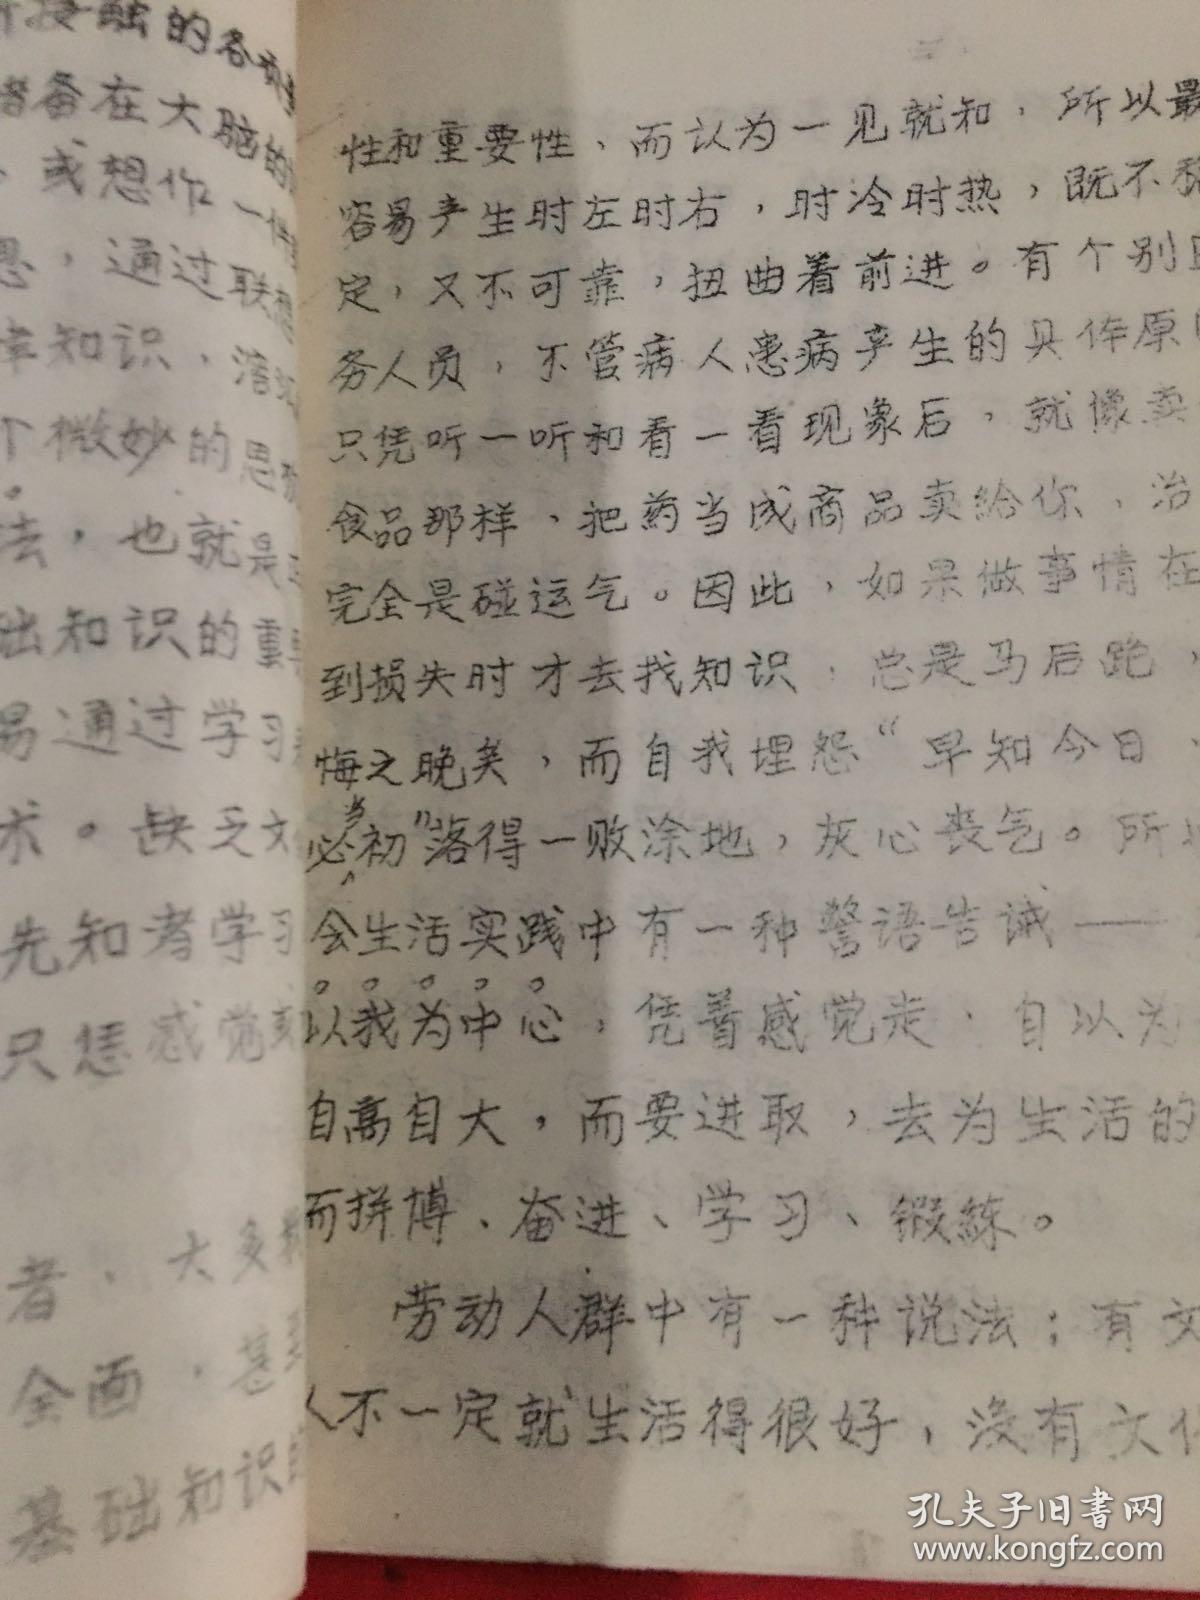 接触的各项
储备在大脑的
、或想作一件
思，通过联想
律知识，
个微妙的思
法，也就是
础知识的重要
易通过学习
术。缺乏文
先知者学习
只凭感觉
者，大多数
全面，甚
基础知识的
性和重要性、而认为一见就知，所以最
容易产生时左时右，时冷时热，既不稳
定，又不可靠，扭曲着前进。有个别医
务人员，不管病人患病产生的具体原因
只凭听一听和看一看现象后，就像卖
食品那样、把药当成商品卖给你、治
完全是碰运气。因此，如果做事情在
到损失时才去找知识，总是马后跑，
悔之晚矣，而自我埋怨“早知今日、
必当初”落得一败涂地，灰心丧气。所以
会生活实践中有一种警语告诫——
以我为中心，凭着感觉走、自以为
自高自大，而要进取，去为生活的
而拼博、奋进、学习、锻練。
劳动人群中有一种说法；有文
人不一定就生活得很好，没有文化
孔夫子旧书网
www.kongfz.com